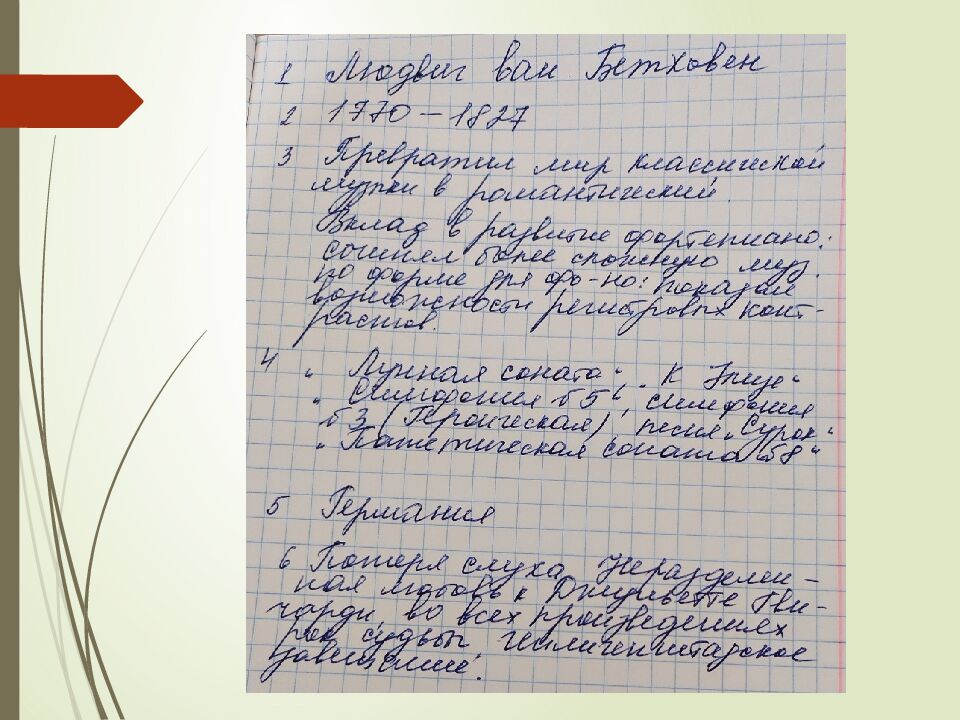 1 Людвиг ван Бетховен
2 1770 – 1827
3 Превратил мир классической
музыки в романтический.
Вклад в развитие фортепиано:
сочинял более сложную муз.
по форме для фо-но: показал
возможности регистровых конт-
растов.
4 „Лунная соната", „К Элизе"
„Симфония №5", симфония
№3 (Героическая), песня „Сурок"
„Патетическая соната №8"
5 Германия
6 Потеря слуха, Неразделен-
ная любовь к Джульетте Гви-
чарди, во всех произведениях
рок судьбы, гейлигенштадское
завещание.